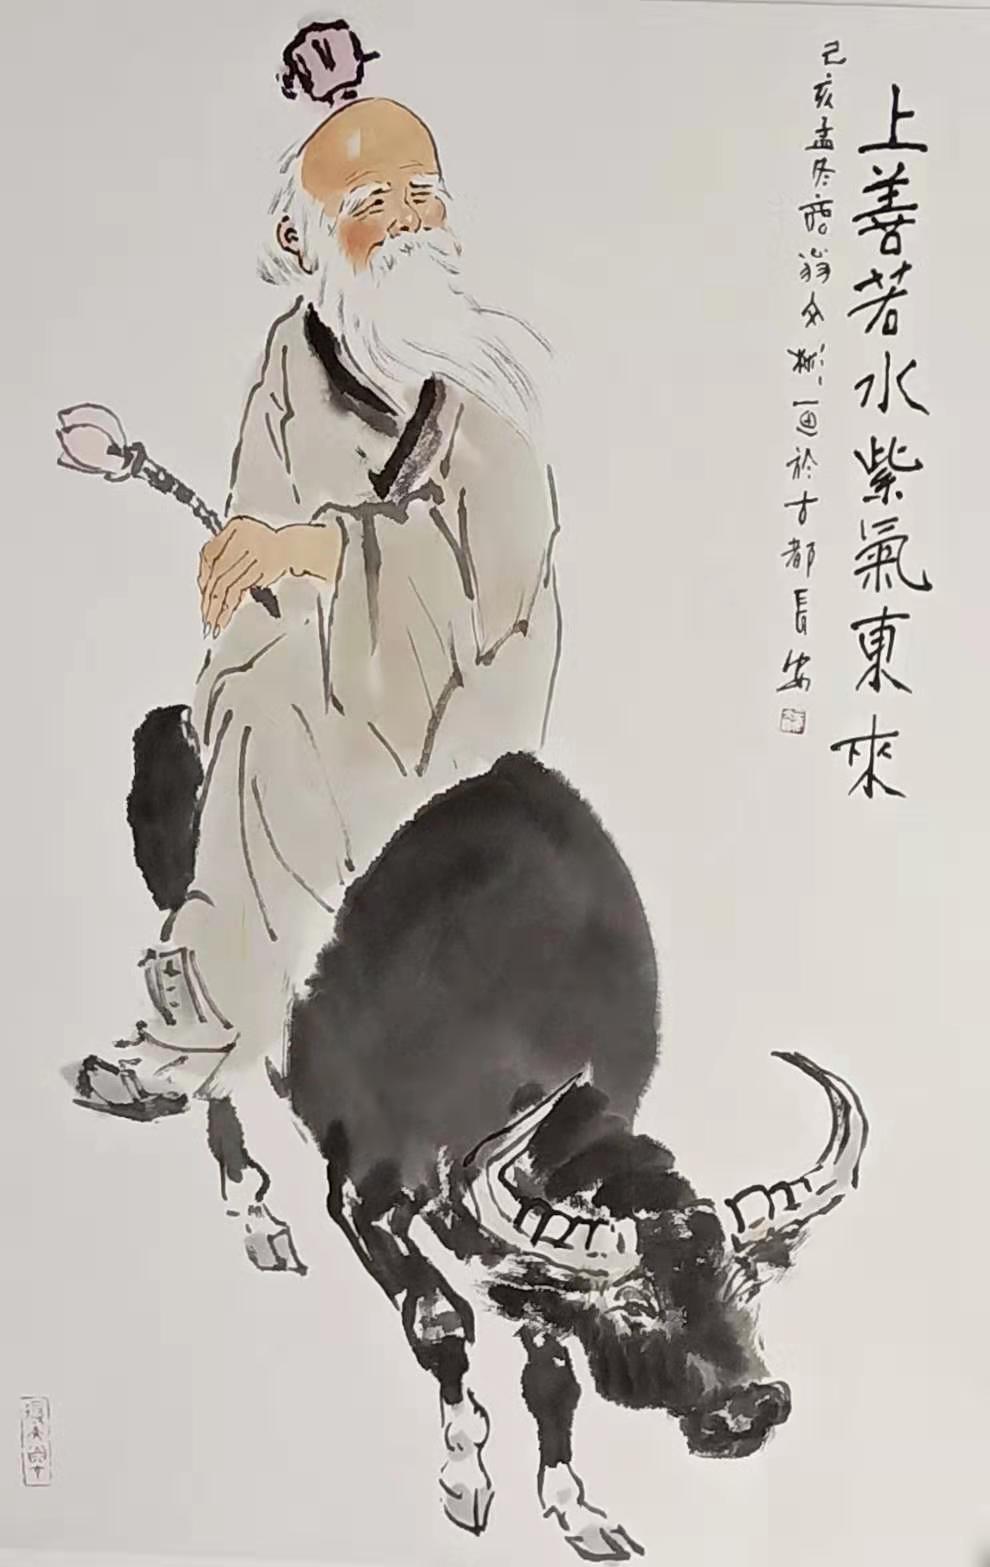 上善若水紫氣東來
己亥孟冬 翁文彬 画於古都長安